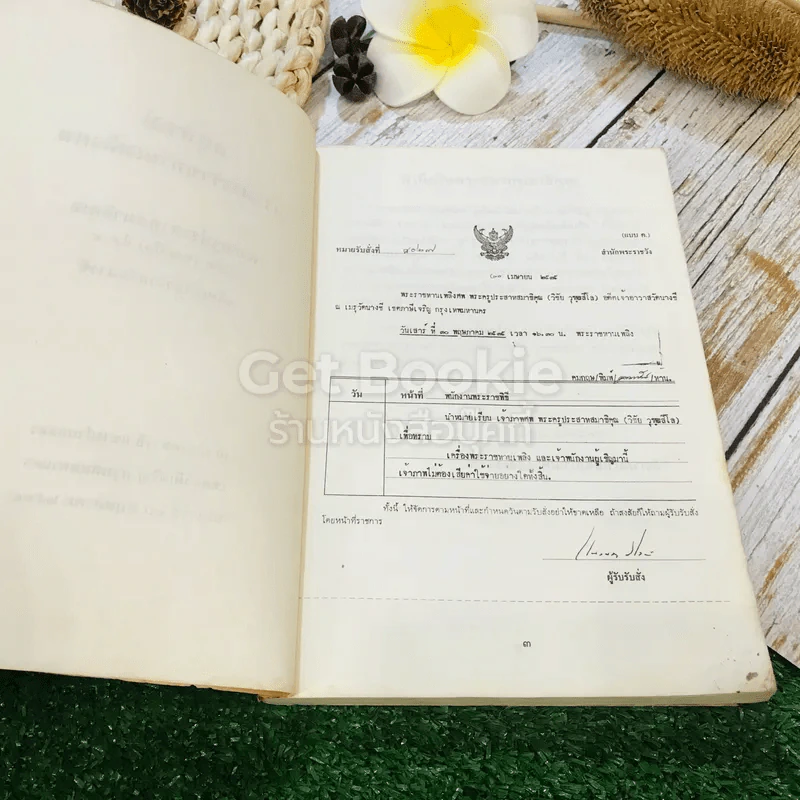 (แบบ ค.)
หมายรับสั่งที่ ๔๐๒๗
สำนักพระราชวัง
เมษายน ๒๕๓๕
พระราชทานเพลิงศพ พระครูประสาทสมาธิคุณ (วิชัย วุฑฺฒสีโล) อดีตเจ้าอาวาสวัดนางชี
ณ เมรุวัดนางชี เขตภาษีเจริญ กรุงเทพมหานคร
วันเสาร์ ที่ ๓๐ พฤษภาคม ๒๕๓๕ เวลา ๑๖.๓๐ น. พระราชทานเพลิง
Get Bookie
ร้านหนังสือบุ๊คกี้
คมกฤษ/พิมพ์/ /ทาน.
วัน หน้าที่ พนักงานพระราชพิธี
นำหมายเรียน เจ้าภาพศพ พระครูประสาทสมาธิคุณ (วิชัย วุฑฺฒสีโล)
เพื่อทราบ
เครื่องพระราชทานเพลิง และเจ้าพนักงานผู้เชิญมานี้
เจ้าภาพไม่ต้องเสียค่าใช้จ่ายอย่างใดทั้งสิ้น.
ทั้งนี้ ให้จัดการตามหน้าที่และกำหนดวันตามรับสั่งอย่าให้ขาดเหลือ ถ้าสงสัยก็ให้ถามผู้รับรับสั่ง
โดยหน้าที่ราชการ
ผู้รับรับสั่ง
๓